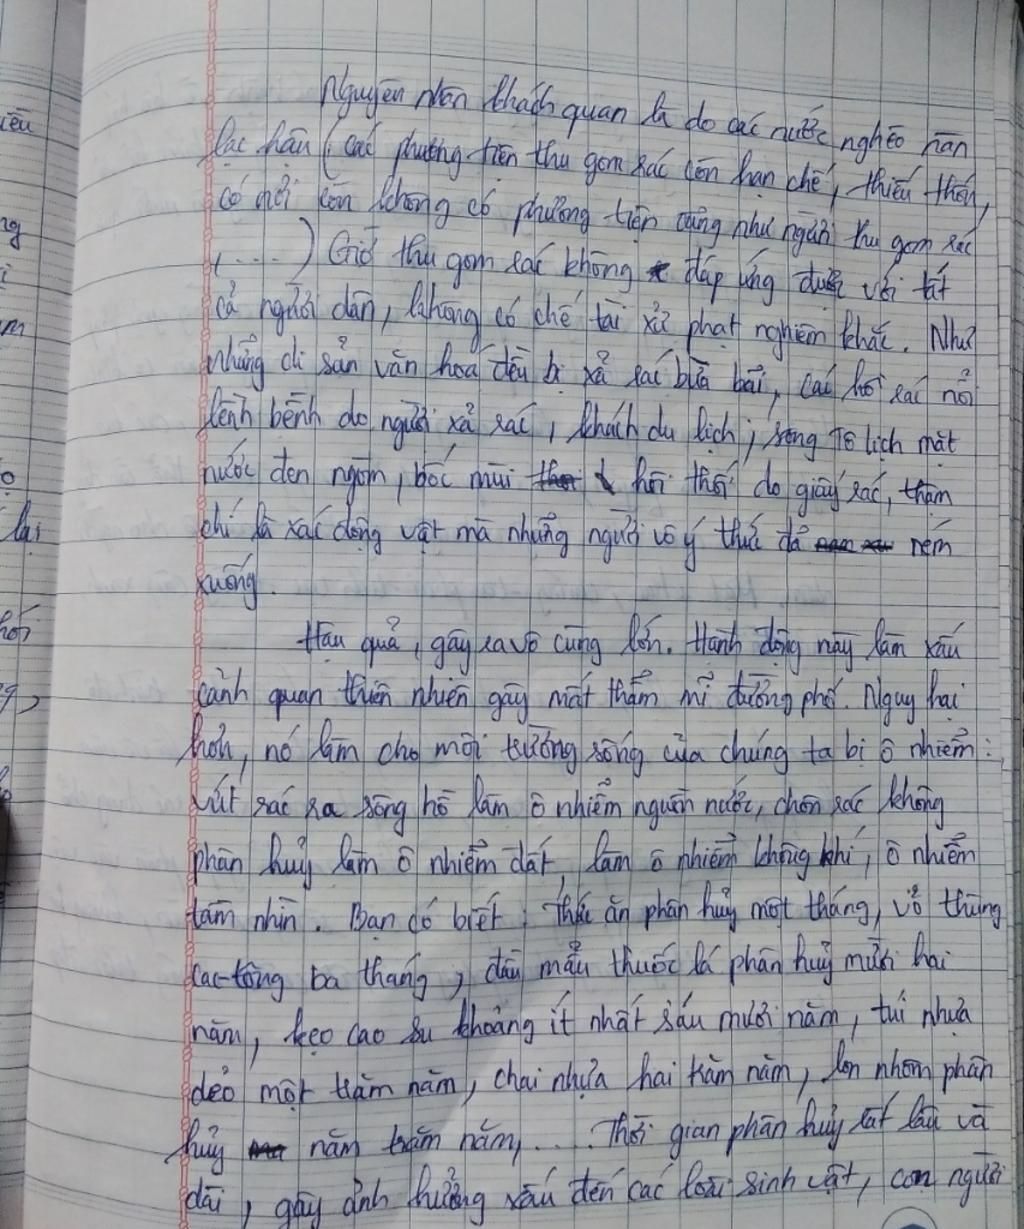 Nguyên nhân khách quan là do các nước nghèo nàn
lạc hậu (các phương tiện thu gom rác còn hạn chế, thiếu thốn,
có nơi còn không có phương tiện cũng như người thu gom rác
,....) Giờ thu gom rác không đáp ứng được với tất
cả người dân, không có chế tài xử phạt nghiêm khắc. Như
những di sản văn hoá đều bị xả rác bừa bãi, các hồ rác nổi
lềnh bềnh do người xả rác, khách du lịch; sông Tô lịch mặt
nước đen ngòm, bốc mùi hôi thối do giấy rác, thậm
chí là xác động vật mà những người vô ý thức đã ném
xuống.
Hậu quả, gây ra vô cùng lớn. Hành động này làm xấu
cảnh quan thiên nhiên gây mất thẩm mĩ đường phố. Nguy hại
hơn, nó làm cho môi trường sống của chúng ta bị ô nhiễm:
vứt rác ra sông hồ làm ô nhiễm nguồn nước, chôn rác không
phân huỷ làm ô nhiễm đất, làm ô nhiễm không khí, ô nhiễm
tầm nhìn. Bạn có biết: Thức ăn phân huỷ một tháng, vỏ thùng
cac-tông ba tháng, đầu mẩu thuốc lá phân huỷ mười hai
năm, kẹo cao su khoảng ít nhất sáu mươi năm, túi nhựa
dẻo một trăm năm, chai nhựa hai trăm năm, lon nhôm phân
huỷ năm trăm năm,.... Thời gian phân huỷ rất lâu và
dài, gây ảnh hưởng xấu đến các loài sinh vật, con người